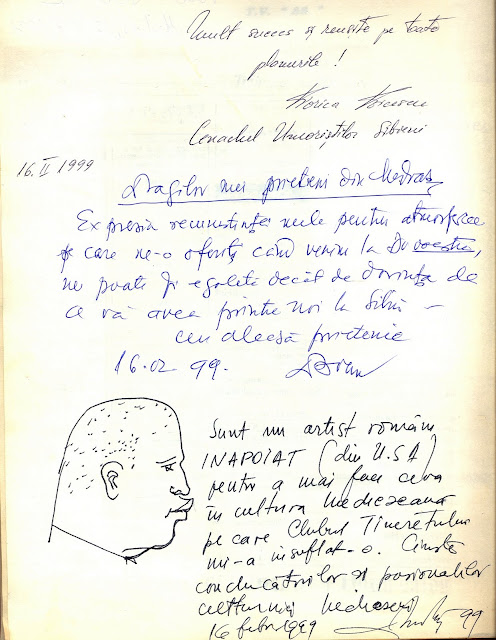 Mult succes și reușite pe toate
planurile !
Cenaclul Umoriștilor Sibieni
16. II 1999
Dragilor mei prieteni din Mediaș
Expresia recunoștinței mele pentru atmosfera
pe care ne-o oferiți când venim la Dvoastră,
ne poate fi egalată decât de dorința de
a vă avea printre noi la Sibiu –
cu aleasă prietenie
16.02 99.
Sunt un artist român
INAPOIAT (din U.S.A)
pentru a mai face ceva
în cultura medieșeană
pe care Clubul Tineretului
mi-a insuflat-o. Cinste
conducătorilor și pasionaților
culturnici medieșeni
16 febr 1999
99